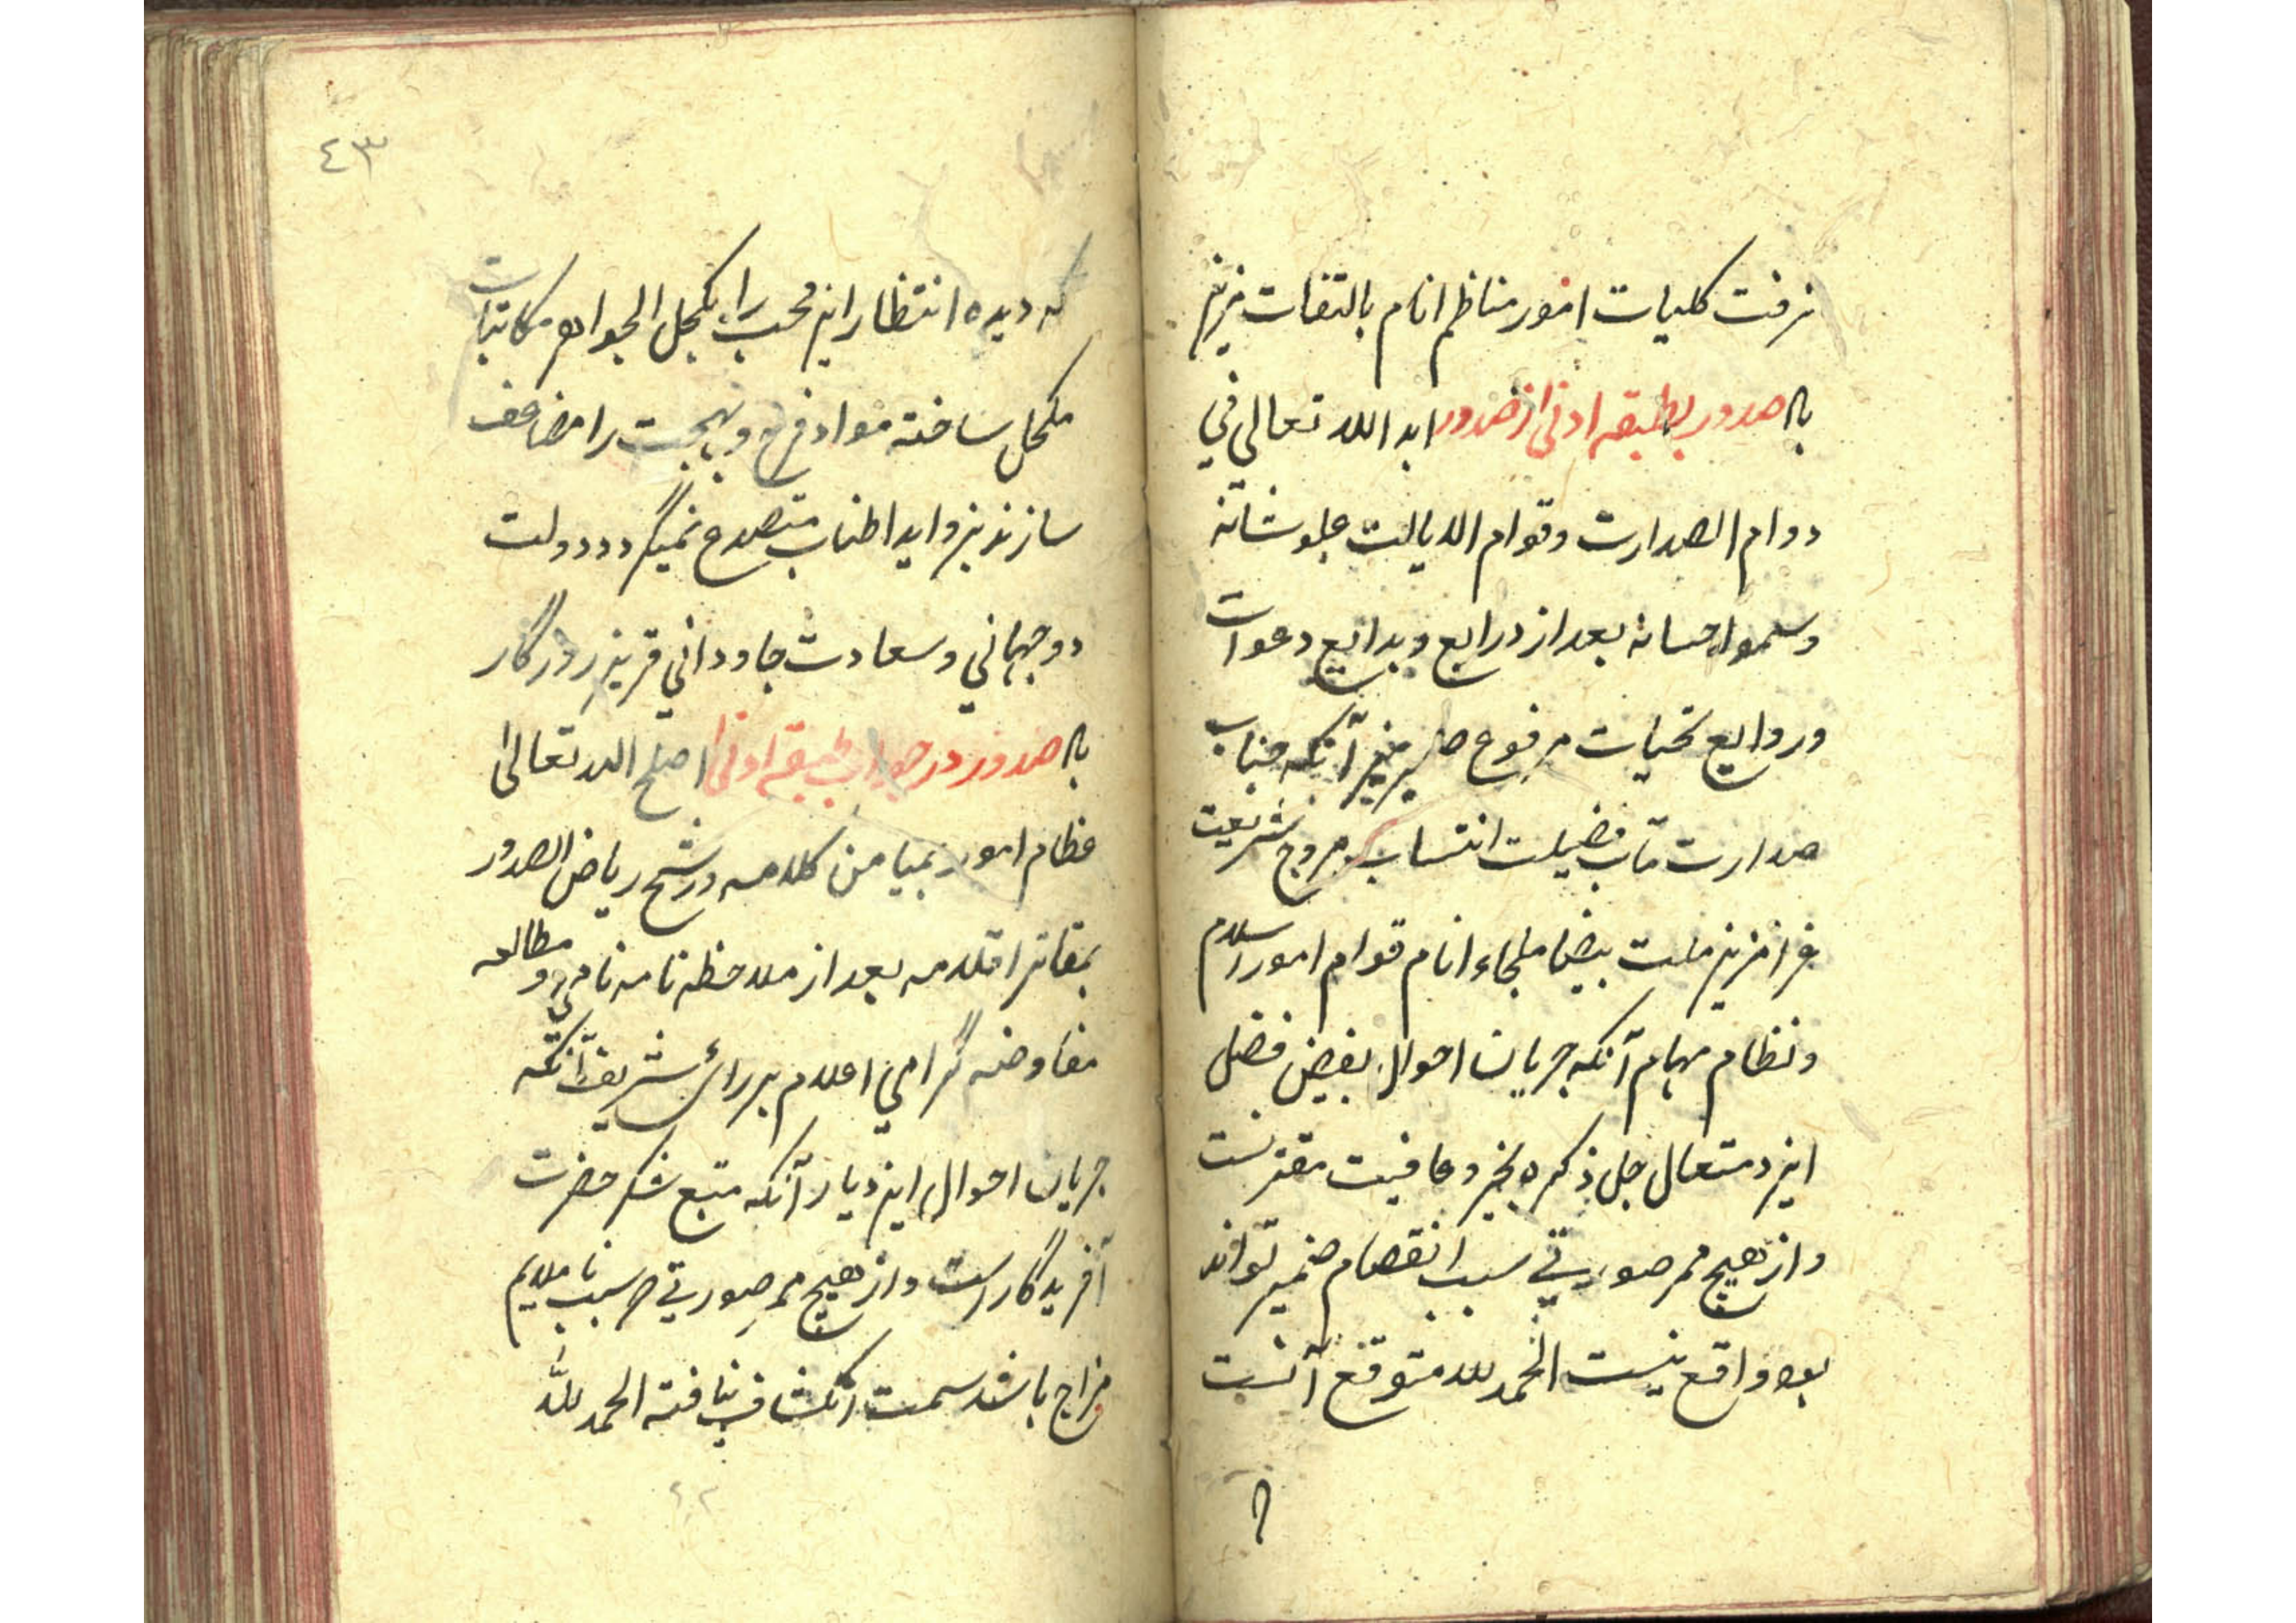 نرفت کلیات امور مناظم انام بالتفات
صدور بطبقه ادنی از صدور ابد الله تعالی فی
دوام الصدارت وقوام الدیالت علو شانه
وسمو احسانه بعد از ذرایع وبدایع دعوات
وروایع تحیات مرفوع ضمیر آنکه جناب
صدارت مآب فضیلت انتساب مروج شریعت
غرا ملت بیضا ملجاء انام قوام امور اسلام
ونظام مهام آنکه جریان احوال بفیض فضل
ایزد متعال جل ذکره بخیر وعافیت مقترنست
واز هیچ ممر صورتی سبب انقصام ضمیر تواند
بود واقع نیست الحمد لله متوقع آنست
٤٣
که دیده انتظار این محب را بکحل الجواهر مکاتبات
مکحل ساخته مواد فرح وبهجت را مضاعف
سازند بزواید اطناب متصدع نمیگردد دولت
دوجهانی وسعادت جاودانی قرین روزگار
صدور در جواب طبقه ادنی اصلح الله تعالی
عظام امور بمیامن کلامه ورشح ریاض الصدور
اقلامه بعد از ملاحظه نامه نامی ومطالعه
مفاوضه گرامی اعلام بر رای شریف آنکه
جریان احوال این دیار آنکه متبع شکر حضرت
آفریدگار است واز هیچ ممر صورتی سبب ناملایم
مزاج باشد سمت انکشاف نیافته الحمد لله